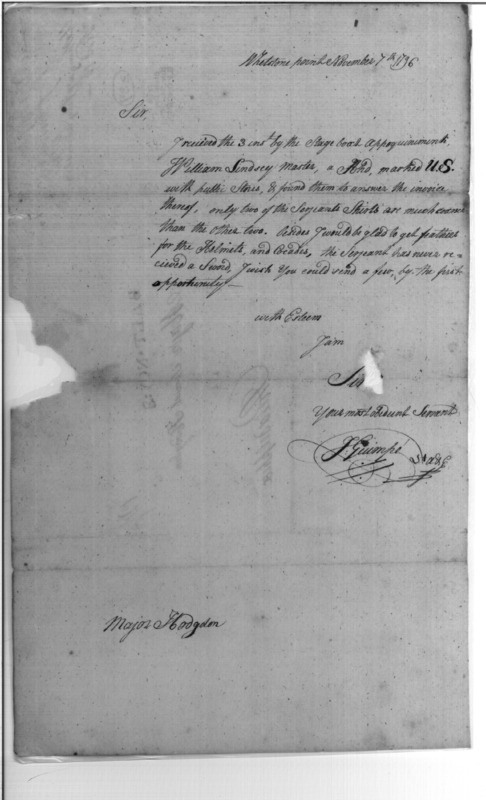 Whetstone point November 7th 1796
Sir
I received the 3 inst by the Stage boat appoquinemink,
William Lindsey Master, a Hhd, marked U.S.
with public Stores, & found them to answer the invoice
thereof, only two of the Serjeants Shirts are much
than the other two. Besides I would be glad to get feathers
for the Helmets, and Cocades, the Serjeant has never re=
cieved a Sword, I wish You could send a few, by the first
opportunity—
with Esteem
I am
Sir
Your most obedient Servant
Major Hodgdon